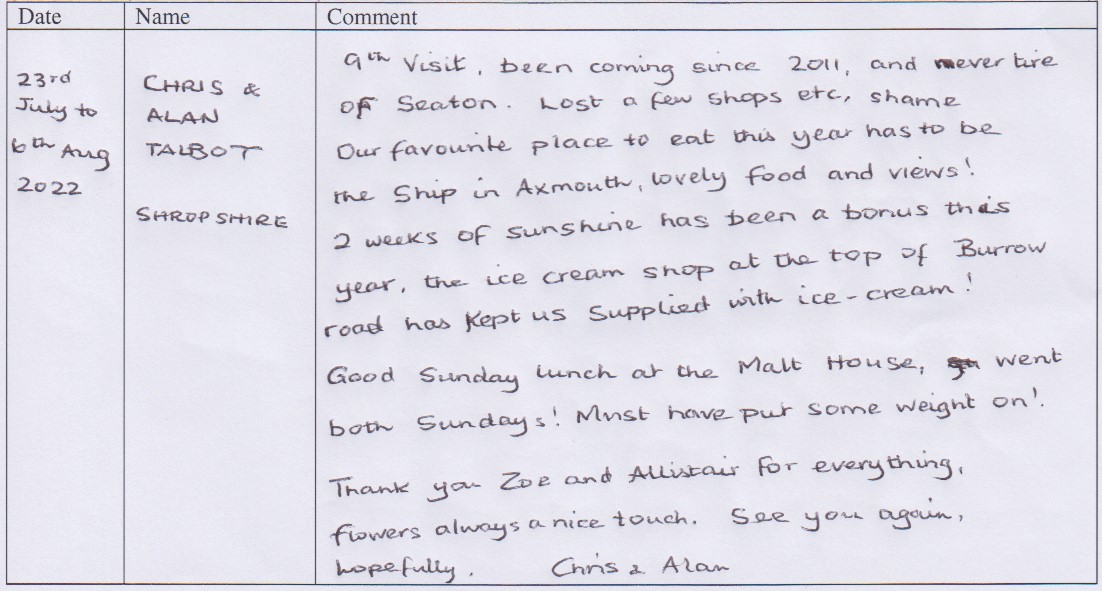 Date Name Comment
23rd
July to
6th Aug
2022
CHRIS &
ALAN
TALBOT
SHROPSHIRE
9th Visit, been coming since 2011, and never tire
of Seaton. Lost a few shops etc, shame
Our favourite place to eat this year has to be
the Ship in Axmouth, lovely food and views!
2 weeks of sunshine has been a bonus this
year, the ice cream shop at the top of Burrow
road has kept us supplied with ice-cream!
Good Sunday lunch at the Malt House, went
both Sundays! Must have put some weight on!
Thank you Zoe and Allistair for everything,
flowers always a nice touch. See you again,
hopefully. Chris & Alan